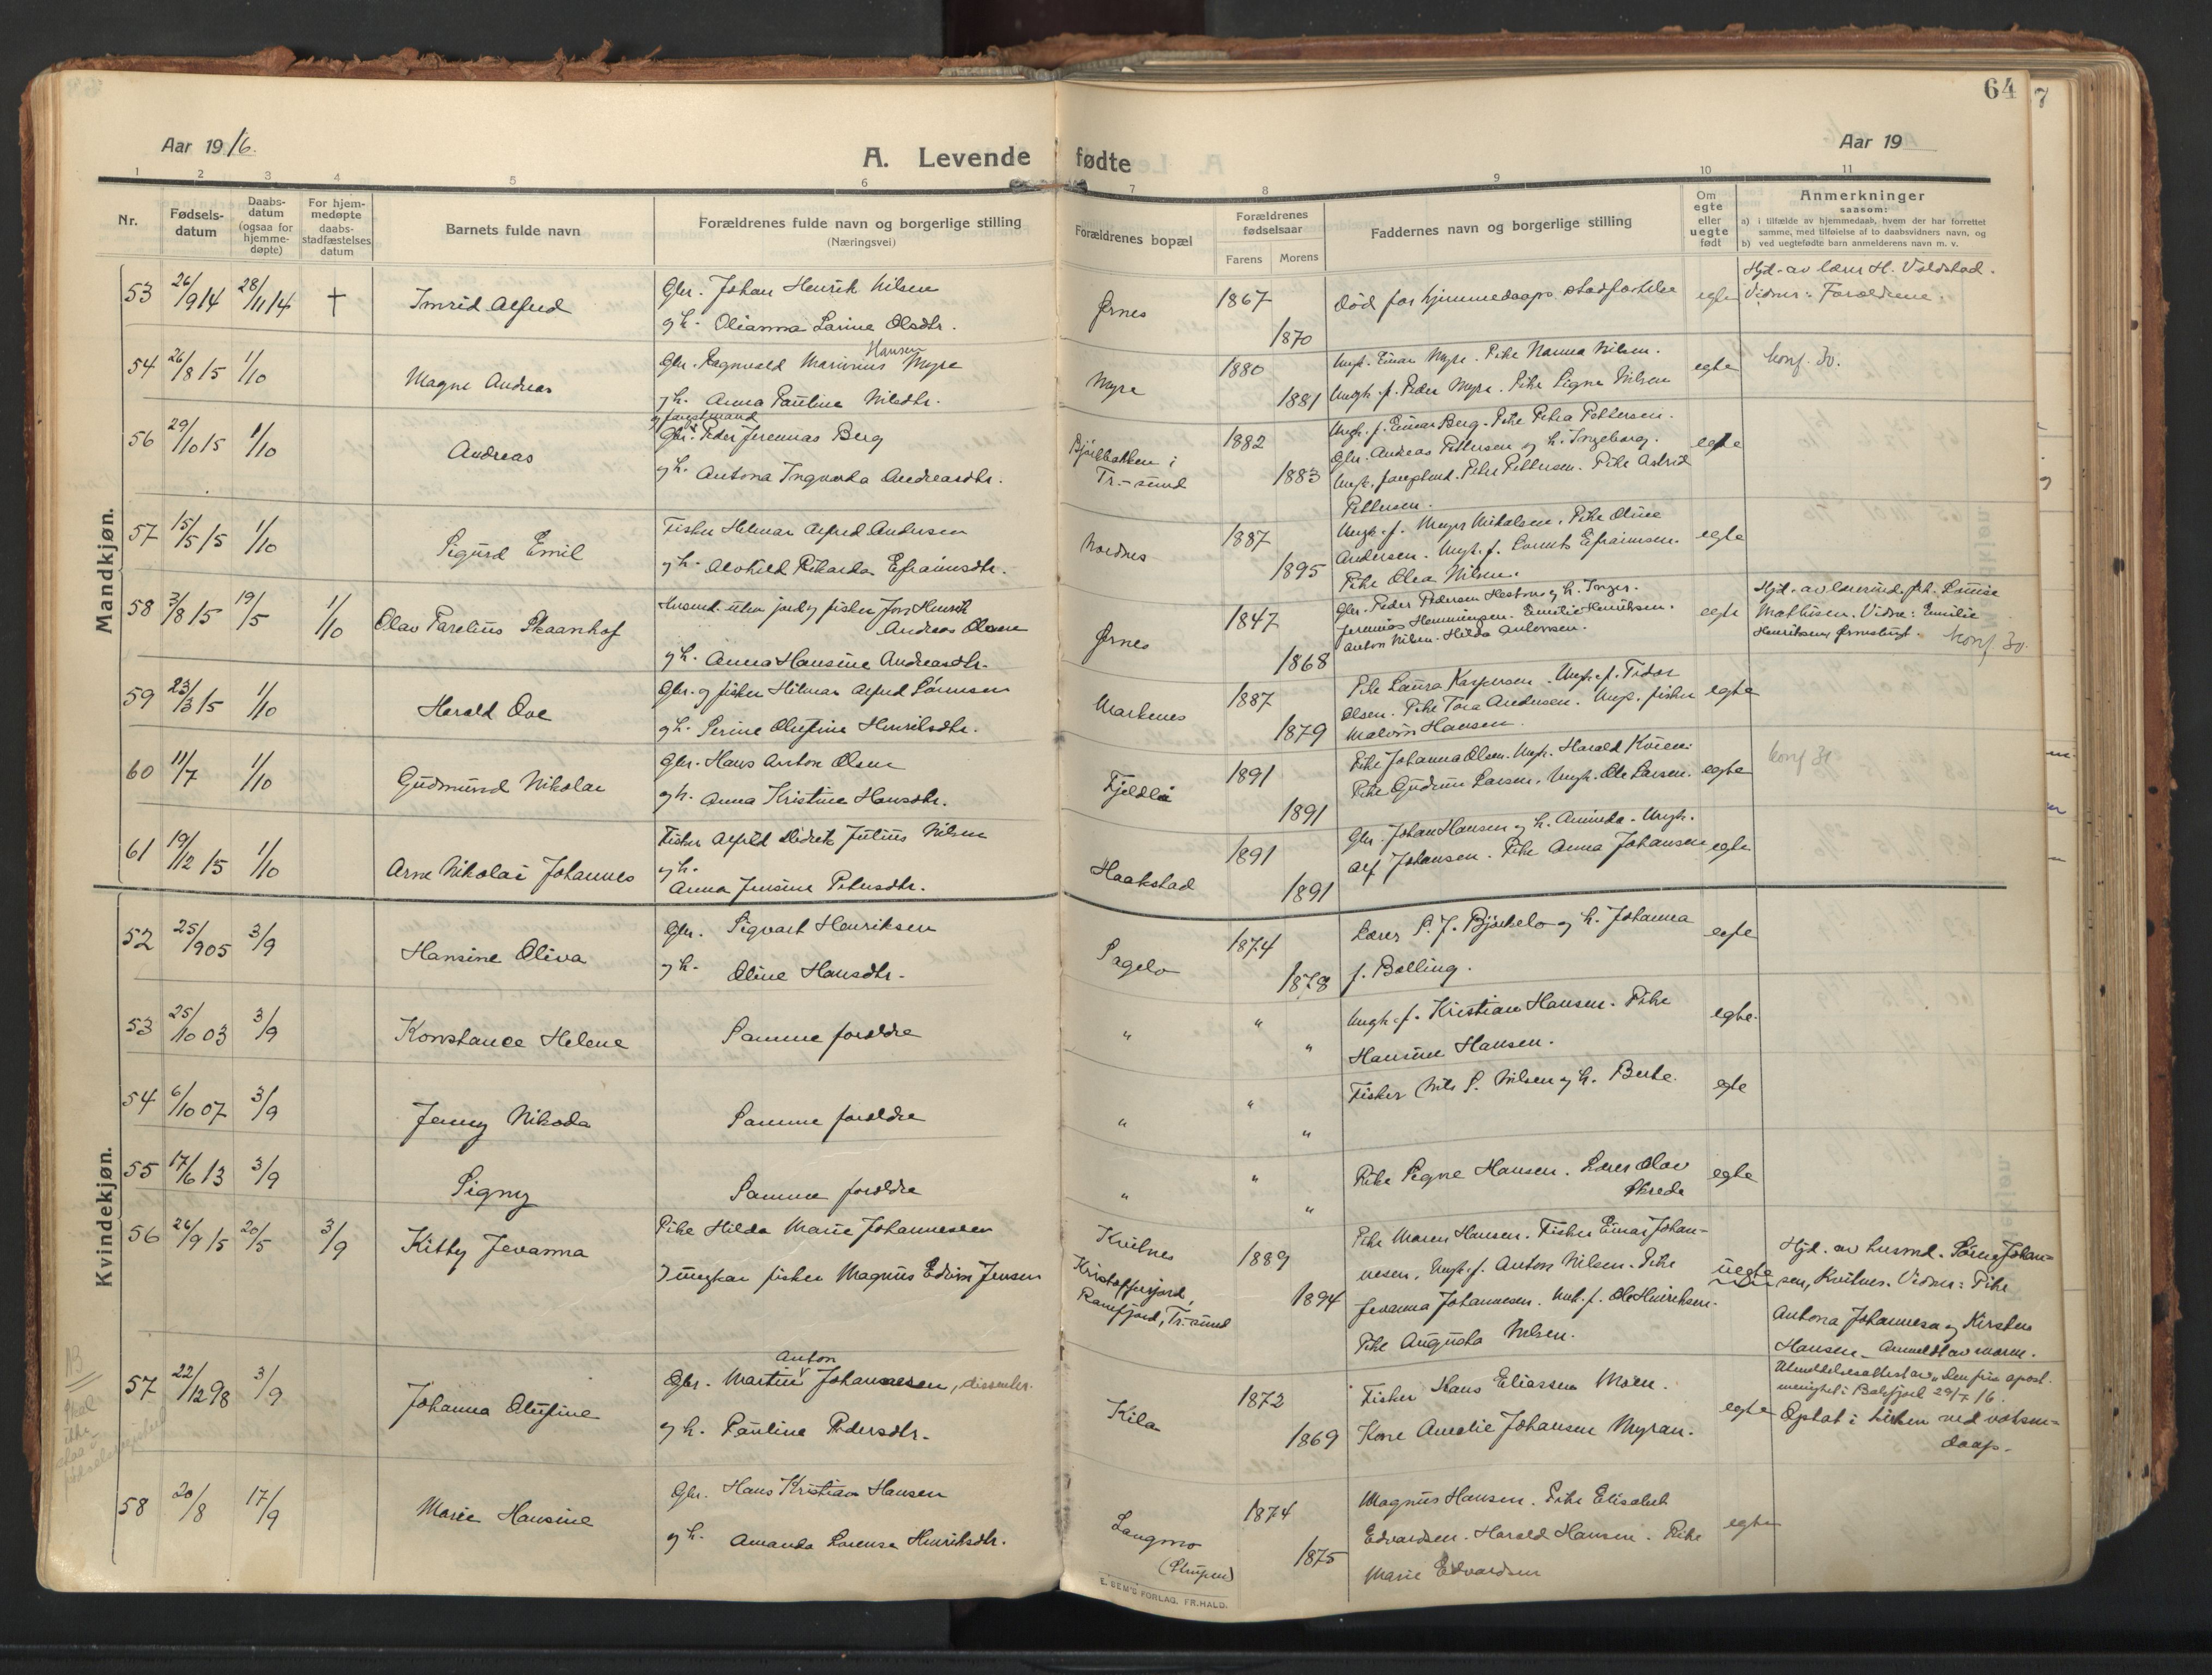 64
7
Aar 1916.
A. Levende fødte
Aar 19
1 2 3 4 5 6 7 8 9 10 11
Nr.
Fødsels-
datum
Daabs-
datum
(ogsaa for
hjemme-
døpte)
For hjem-
medøpte
daabs-
stadfæstelses
datum
Barnets fulde navn
Forældrenes fulde navn og borgerlige stilling
(Næringsvei)
Forældrenes bopæl
Forældrenes
fødselsaar
Farens Morens
Faddernes navn og borgerlige stilling
Om
egte
eller
uegte
født
Anmerkninger
saasom:
a) i tilfælde av hjemmedaab, hvem der har forrettet
samme, med tilføielse af to daabsvidners navn, og
b) ved uegtefødte barn anmelderens navn m. v.
Mandkjøn.
53 26/9 14 28/11 14 † Imrid Alfred
Gbr. Johan Henrik Nilsen
og h. Olianna Larine Olsdtr.
Ørnes 1867 1870
Død før hjemmedaaps stadfæstelse
egte
Hjd. av lærer H. Voldstad.
Vidner: Forældrene.
54 26/8 15 1/10 Magne Andreas
Hansen
Gbr. Ragnvald Marinius Myre
og h. Anna Pauline Nilsdtr.
Myre 1880 1881
Ungk. Einar Myre. Pike Nanna Nilsen.
Ungk. f. Peder Myre. Pike Signe Nilsen
egte
konf. 30.
56 29/10 15 1/10 Andreas
Gbr. Peder Jeremias Berg
og h. Antona Ingvarda Andreasdtr.
Bjørkbakken i
Tr.-sund
1882 1883
Ungk. f. Einar Berg. Pike Petra Pettersen.
Gbr. Andreas Pettersen og h. Ingeborg.
Pettersen. Pike Astrid
Pettersen.
egte
57 15/5 15 1/10 Sigurd Emil
Fisker Hilmar Alfred Andersen
og h. Alvhild Rikarda Efraimsdtr.
Nordnes 1887 1895
Ungk. f. Meyer Mikalsen. Pike Oline
Andersen. Ungk. f. Lorents Efraimsen.
Pike Olea Nilsen.
egte
58 3/8 15 19/5 1/10 Olav Parelius Skaanhof
Husmd. uten jord og fisker Jens Henrik
Andreas Olsen
og h. Anna Hansine Andreasdtr.
Ørnes 1847 1868
Gbr. Peder Pedersen Hestnes og h. Inger.
Jeremias Henningsen. Emilie Henriksen.
Anton Nilsen. Hilda Antonsen.
egte
Louise
Mathisen. Vidne: Emilie
Henriksen,
konf. 30.
59 23/3 15 1/10 Harald Ove
Gbr. og fisker Hilmar Alfred Sørensen
og h. Serine Olufine Henriksdtr.
Markenes 1887 1879
Pike Laura Kaspersen. Ungk. f. Fidor
Olsen. Pike Tora Andersen. Ungk. fisker
Malvin Hansen.
egte
60 11/7 1/10 Gudmund Nikolai
Gbr. Hans Anton Olsen
og h. Anna Kristine Hansdtr.
Fjeldli 1891 1891
Pike Johanna Olsen. Ungk. Harald Kvien.
Pike Gudrun Larsen. Ungk. Ole Larsen.
egte
konf 31
61 19/12 15 1/10 Arne Nikolai Johannes
Fisker Alfild Didrik Julius Nilsen
og h.
Anna Jensine Petersdtr.
Haakstad 1891 1891
Gbr. Johan Hansen og h. Aminda. Ungk.
Alf Johansen. Pike Anna Johansen
egte
Kvindekjøn.
52 25/9 05 3/9 Hansine Oliva
Gbr. Sigvart Henriksen
og h. Oline Hansdtr.
Sagelv 1874 1878
Lærer S. J. Bjørkelo og h. Johanna
f. Balling.
egte
53 25/10 03 3/9 Konstance Helene
Samme forældre
" " "
Ungk. f. Kristian Hansen. Pike
Hansine Hansen.
egte.
54 6/10 07 3/9 Jenny Nikoda
Samme forældre
" " "
Fisker Nils S. Nilsen og h. Berte.
egte
55 17/6 13 3/9 Signy
Samme forældre
" " "
Pike Signe Hansen. Lærer Olav
Skrede
egte
56 26/9 15 20/5 3/9 Kitty Jevanna
Pike Hilda Marie Johannessen
Ungkar fisker Magnus Edvin Jensen
Kvitnes
Kristofferjord,
Ramfjord, Tr.-sund
1889 1894
Pike Maren Hansen. Fisker Einar Johan-
nesen, Ungk. f. Anton Nilsen. Pike
Jevanna Johannesen. Unk. f. Ole Henriksen.
Pike Augusta Nilsen.
uegte
Hjd. av husmd. Søren Johan-
sen, Kvitnes. Vidner: Pike
Antona Johannesen og Kirsten
Hansen. Anmeldt av moren.
57 22/12 98 3/9 Johanna Olufine
Anton
Gbr. Martin Johannesen, dissenter.
og h. Pauline Pedersdtr.
Kila 1872 1869
Fisker Hans Eliassen Moen.
Kone Amalie Johansen Myran.
egte
Utmeldelsesattest av "Den frie apost.
menighet i Balsfjord 29/7 16.
Optat i kirken ved voksen-
daap.
NB
Skal
ikke
staa i
58 20/8 17/9 Marie Hansine
Gbr. Hans Kristian Hansen
og h. Amanda Lorense Henriksdtr.
Langmo
(Strupen)
1874 1875
Magnus Hansen. Pike Elisabet
Edvardsen. Harald Hansen. Pike
Marie Edvardsen
egte
E. SEM'S FORLAG, FR.HALD.